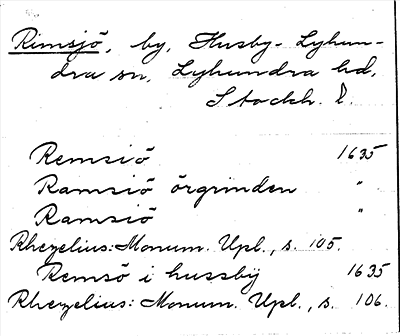 Rimsjö, by, Husby-Lyhun-
dra sn, Lyhundra hd,
Stockh. l.
Remsiö 1635
Ramsiö örgrinden "
Ramsiö "
Rhezelius: Monum. Upl., s. 105.
Remsö i hussbÿ 1635
Rhezelius: Monum. Upl., s. 106.